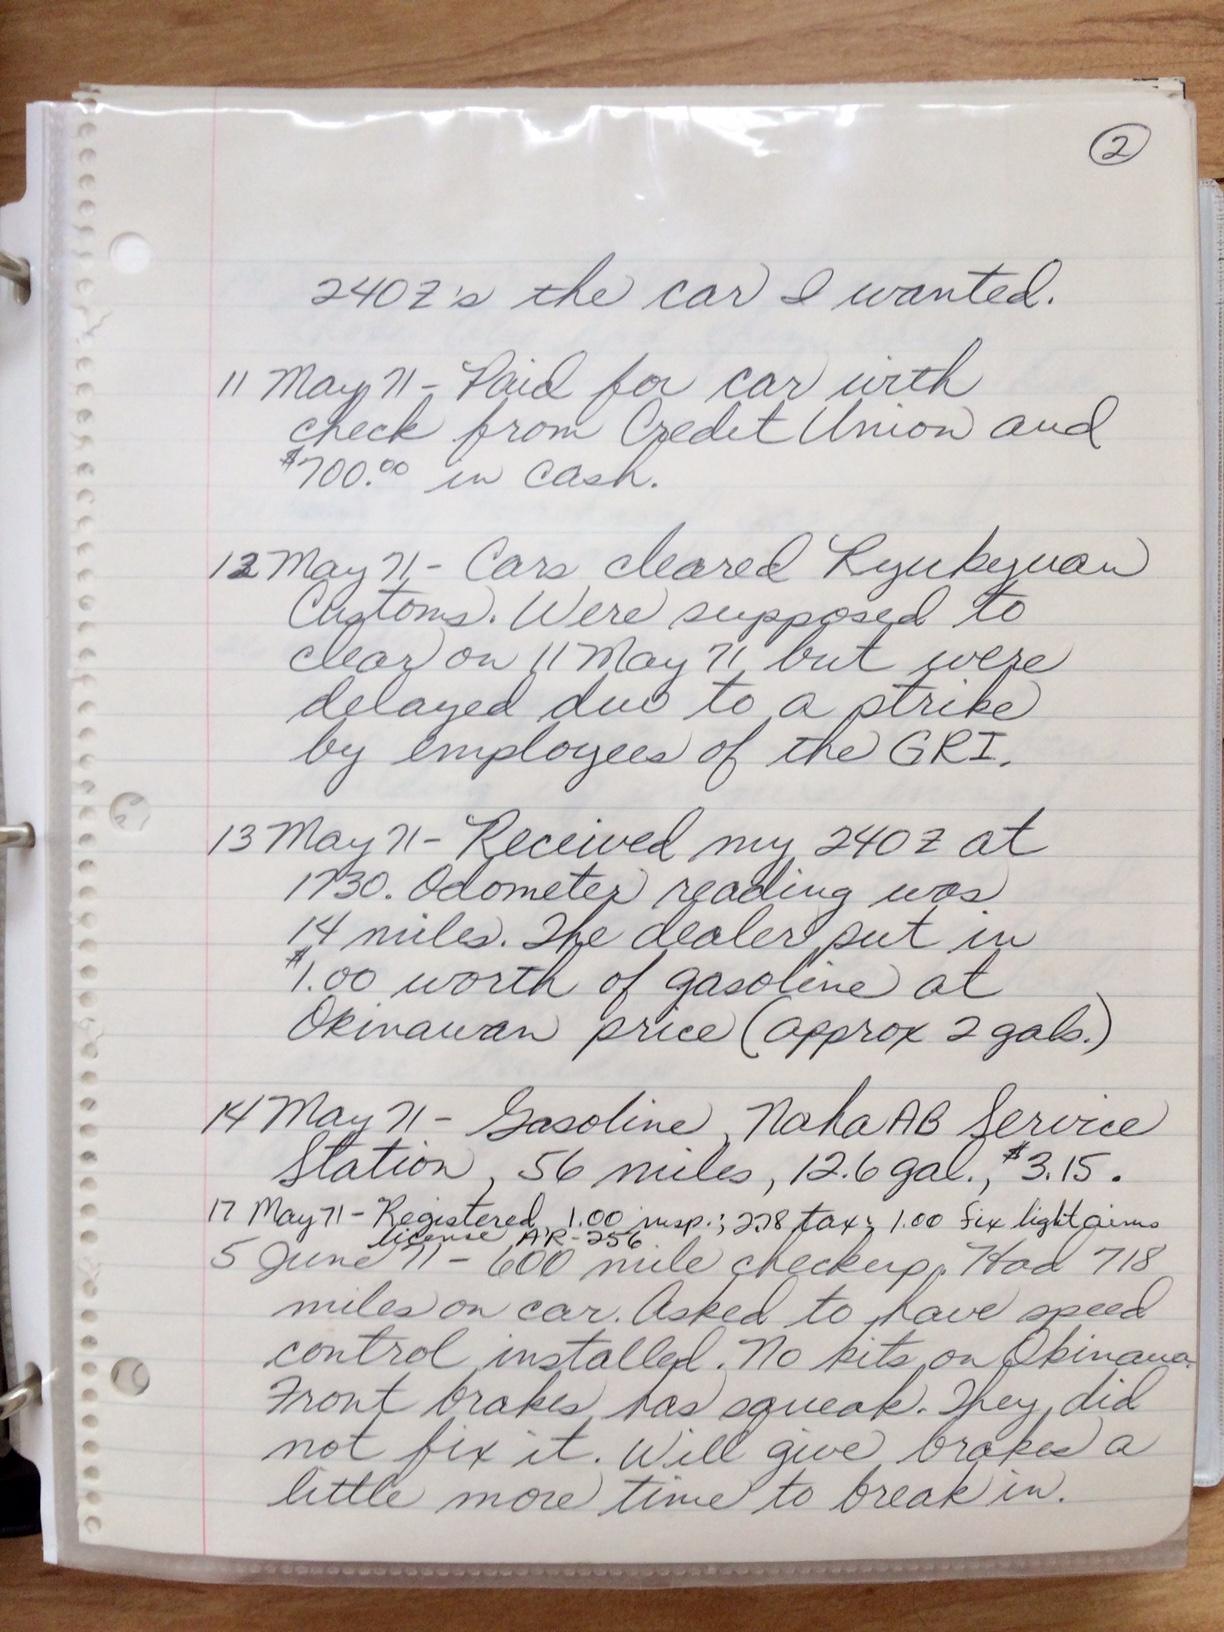 2
240Z's the car I wanted.
11 May 71 - Paid for car with
check from Credit Union and
$700.00 in cash.
12 May 71 - Cars cleared Ryukyuan
Customs. Were supposed to
clear on 11 May 71 but were
delayed due to a strike
by employees of the GRI.
13 May 71 - Received my 240Z at
1730. Odometer reading was
14 miles. The dealer put in
$1.00 worth of gasoline at
Okinawan price (approx 2 gals.)
14 May 71 - Gasoline, Naha AB Service
Station, 56 miles, 12.6 gal., $3.15.
17 May 71 - Registered, 1.00 insp.; 2.78 tax; 1.00 fix light aims
license AR-256
5 June 71 - 600 mile checkup. Had 718
miles on car. Asked to have speed
control installed. No kits on Okinawa.
Front brakes has squeak. They did
not fix it. Will give brakes a
little more time to break in.